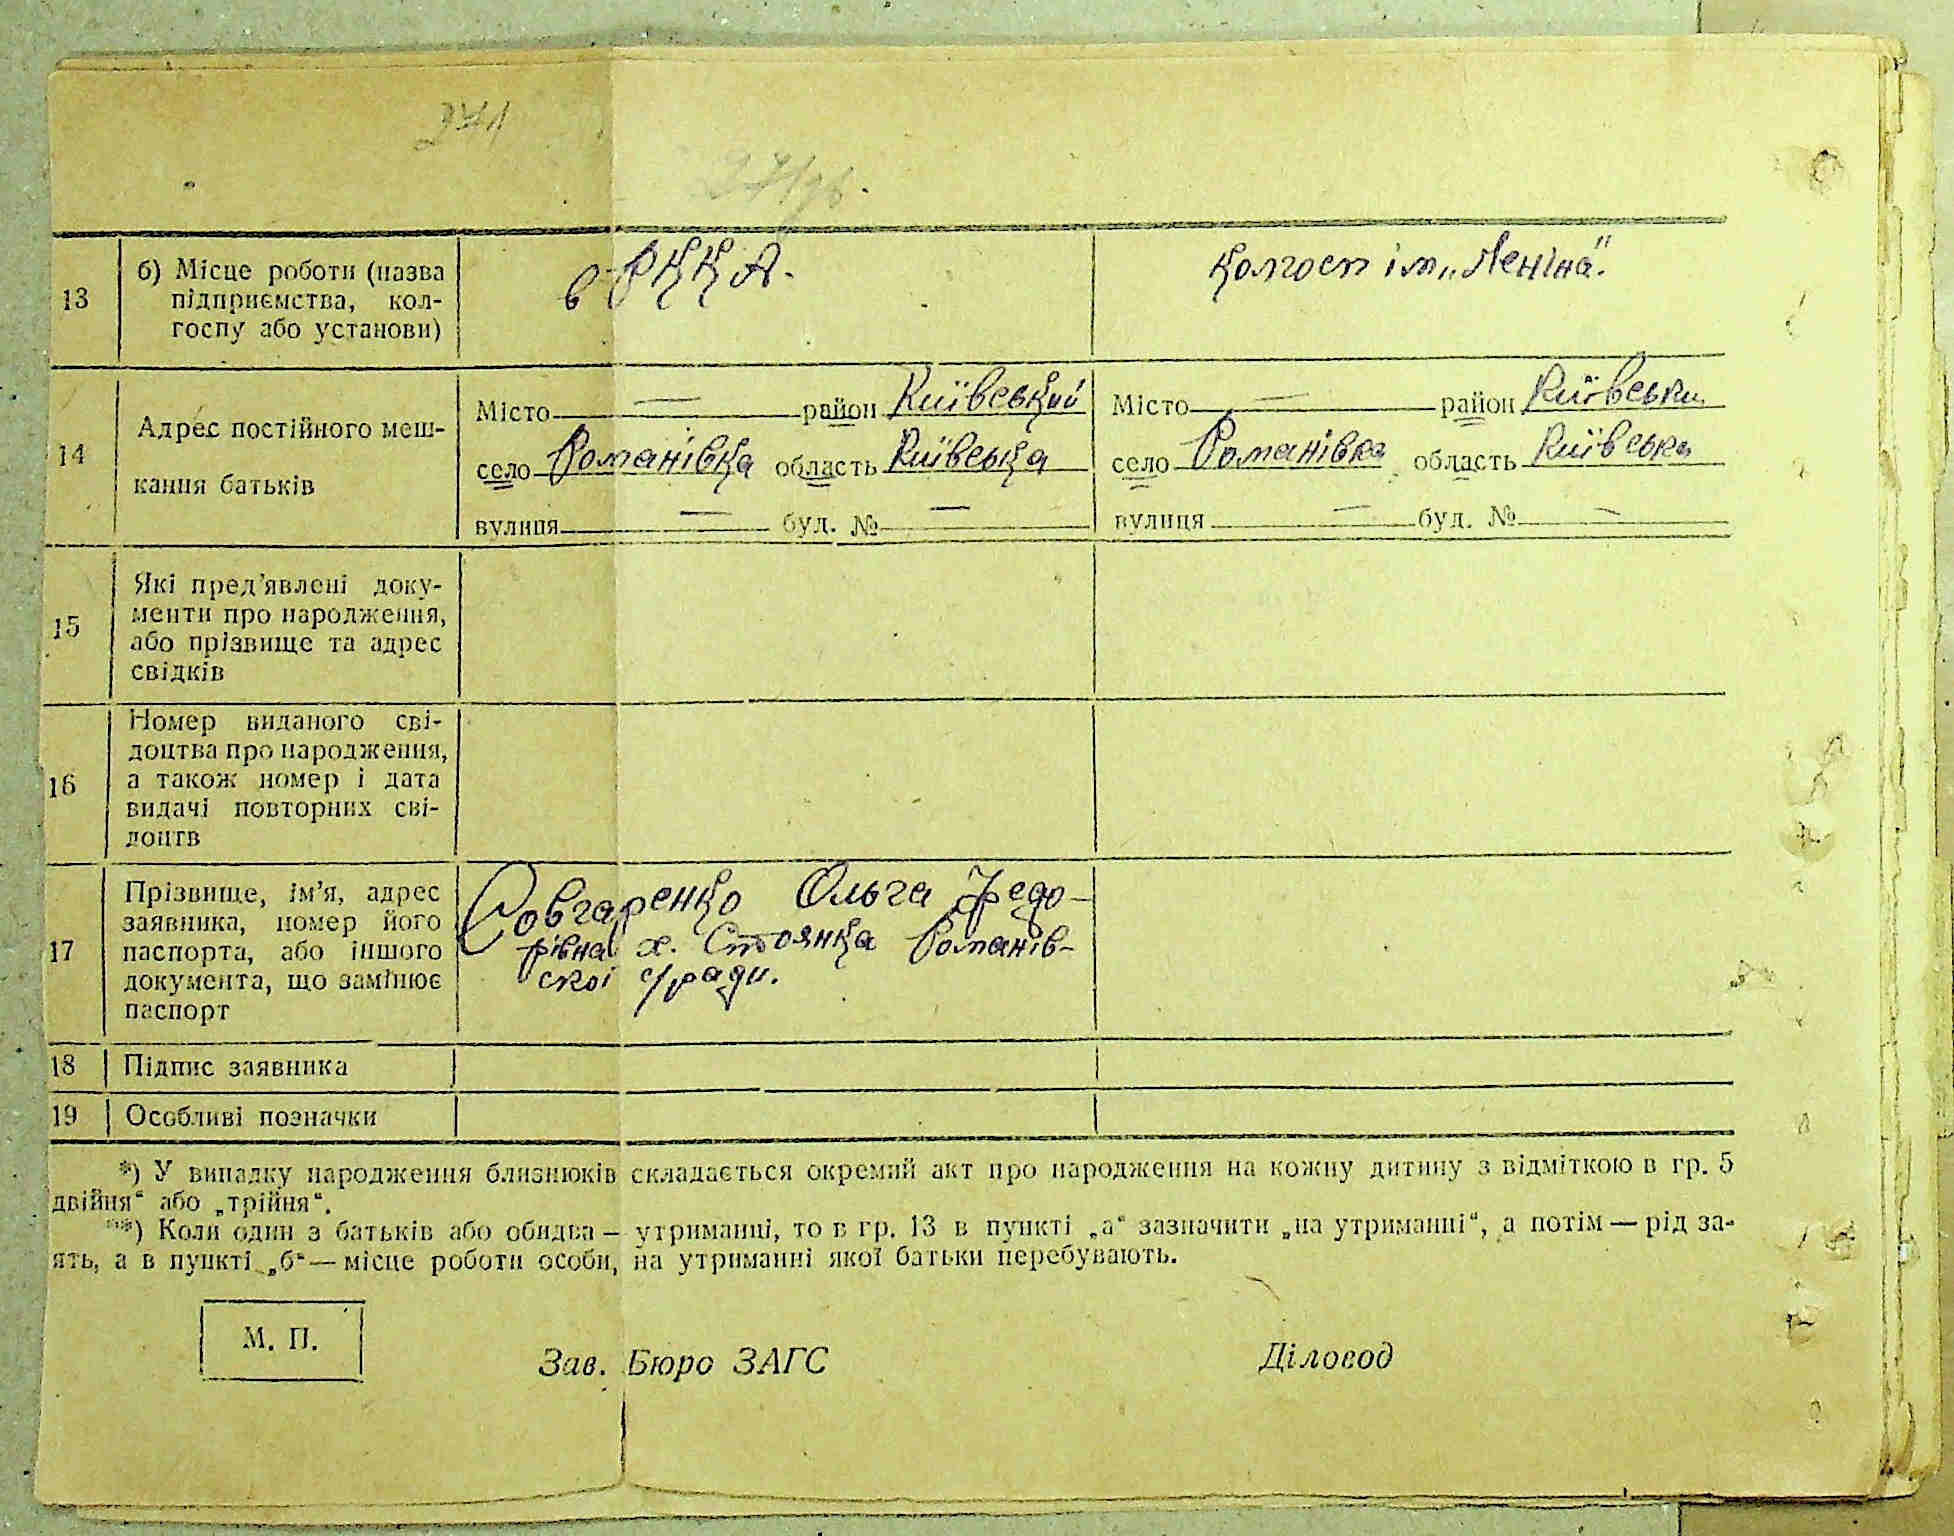 271
271зв.
13
б) Місце роботи (назва
підприємства, кол-
госпу або установи)
в РККА.
Колгосп ім. „Леніна".
14
Адрес постійного меш-
кання батьків
Місто — район Київський
село Романівка область Київська
вулиця — буд. № —
Місто — район Київськи
село Романівка область Київська
вулиця — буд. № —
15
Які пред'явлені доку-
менти про народження,
або прізвище та адрес
свідків
16
Номер виданого сві-
доцтва про народження,
а також номер і дата
видачі повторних сві-
доцтв
17
Прізвище, ім'я, адрес
заявника, номер його
паспорта, або іншого
документа, що замінює
паспорт
Довгаренко Ольга Федо-
рівна х. Стоянка Романів-
скоі с/ради.
18
Підпис заявника
19
Особливі позначки
*) У випадку народження близнюків складається окремий акт про народження на кожну дитину з відміткою в гр. 5
двійня“ або „трійня“.
**) Коли один з батьків або обидва – утриманні, то в гр. 13 в пункті „а“ зазначити „на утриманні“, а потім — рід за-
ять, а в пункті „б“ — місце роботи особи, на утриманні якої батьки перебувають.
М. П.
Зав. Бюро ЗАГС
Діловод